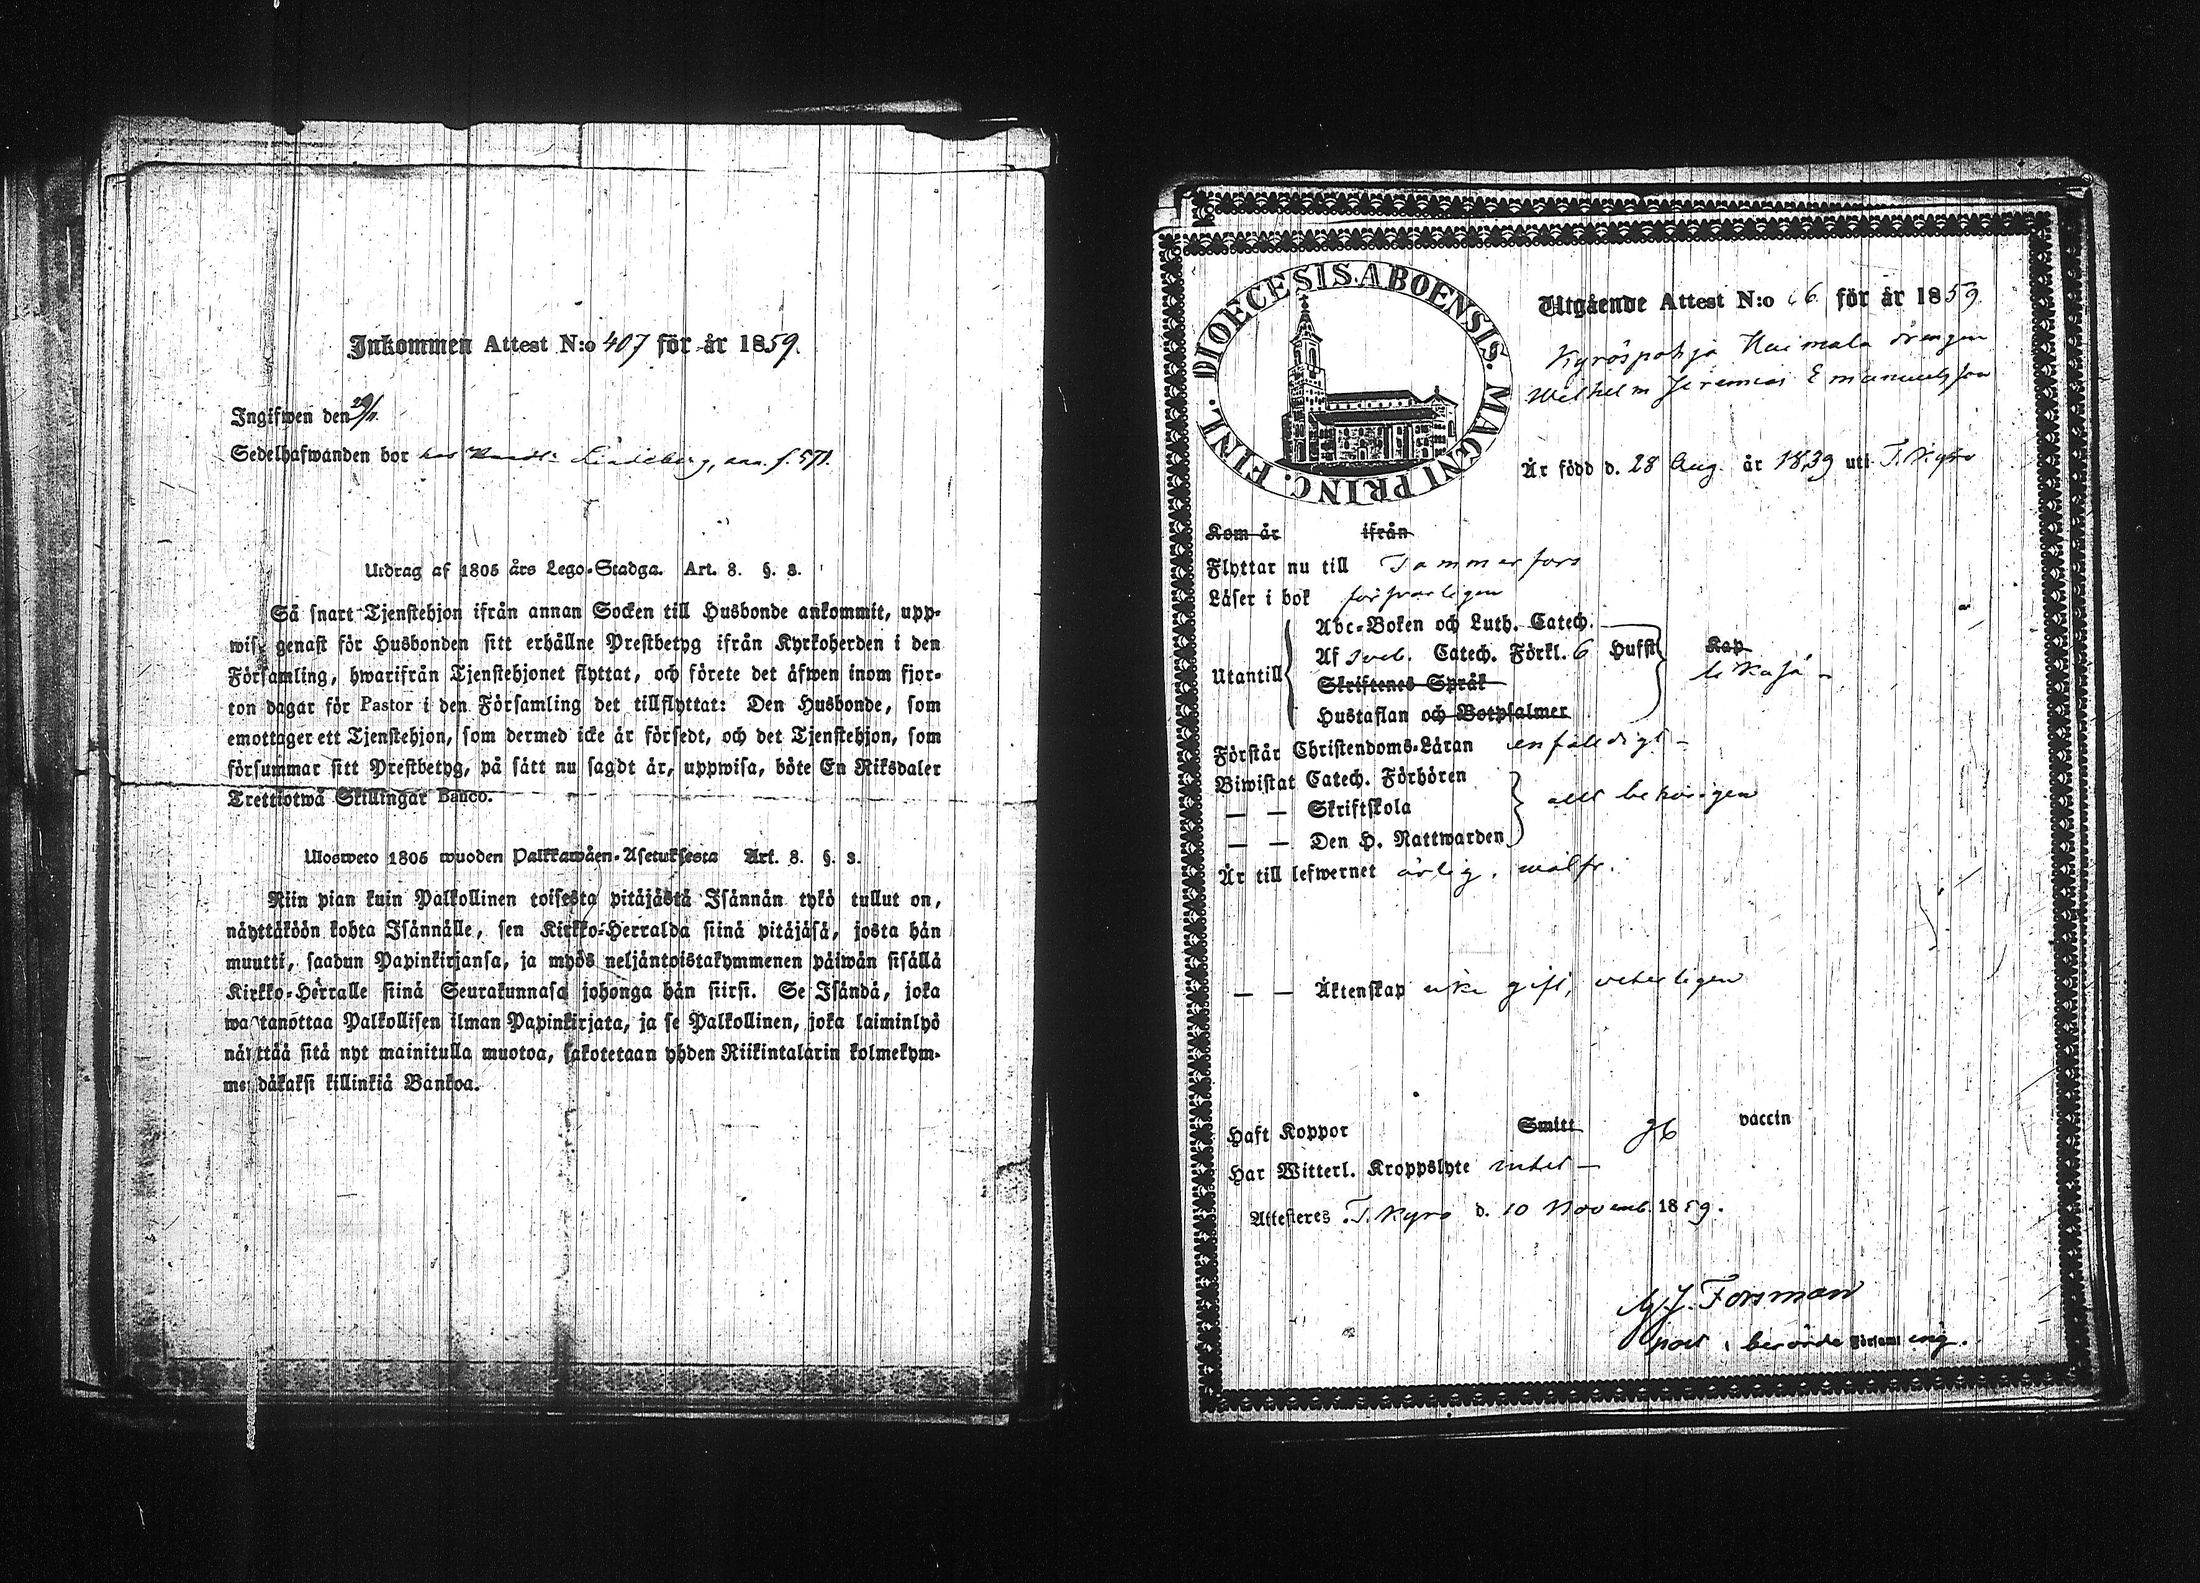 Inkommen Attest N:o 407 för år 1859.
Ingifwen den 29/11
Sedelhafwanden bor hos Lindeberg, f. 571.
Utdrag af 1805 års Lego-Stadga. Art. 8. §. 3.
Så snart Tjenstehjon ifrån annan Socken till Husbonde ankommit, upp-
wise genast för Husbonden sitt erhållne Prestbetyg ifrån Kyrkoherden i den
Församling, hwarifrån Tjenstehjonet flyttat, och förete det äfwen inom fjor-
ton dagar för Pastor i den Församling det tillflyttat: Den Husbonde, som
emottager ett Tjenstehjon, som dermed icke är försedt, och det Tjenstehjon, som
försummar sitt Prestbetyg, på sätt nu sagdt är, uppwisa, böte En Riksdaler
Trettiotwå Skillingar Banco.
Ulosweto 1805 wuoden Palkkawäen-Asetuksesta Art. 8. §. 3.
Niin pian kuin Palkollinen toisesta pitäjästä Isännän tykö tullut on,
näyttäköön kohta Isännälle, sen Kirkko-Herralda siinä pitäjäsä, josta hän
muutti, saadun Papinkirjansa, ja myös neljäntoistakymmenen päiwän sisällä
Kirkko-Herralle siinä Seurakunnasa johonga hän siirsi. Se Isändä, joka
wastanottaa Palkollisen ilman Papinkirjata, ja se Palkollinen, joka laiminlyö
näyttää sitä nyt mainitulla muotoa, sakotetaan yhden Riikintalarin kolmekym-
mendäkaksi killinkiä Bankoa.
DIOECESIS. ABOENSIS. MAGNI PRINC. FINL.
Utgående Attest N:o 66 för år 1859
Kyröspohja Haimala drängen
Wilhelm Jeremias Emanuelsson
Är född d. 28 Aug. år 1839 uti T. Kyro
Kom år ifrån
Flyttar nu till Tammerfors
Läser i bok försvarligen
Abc-Boken och Luth. Catech.
Utantill Af Sveb. Catech. Förkl. 6 Hufst. Kap
likaså
Skriftenes Språk
Hustaflan och Botpsalmer
Förstår Christendoms-Läran enfaldigt
Biwistat Catech. Förhören
— — Skriftskola allt behörigen
— — Den H. Nattwarden
Är till lefwernet ärlig, wälfr.
— — Äktenskap icke gift, veterligen
Haft Koppor Smitt vaccin
Har Witterl. Kroppslyte intet —
Attesteres T. Kyro d. 10 Novemb. 1859.
Forsman
past. i berörde Församling.